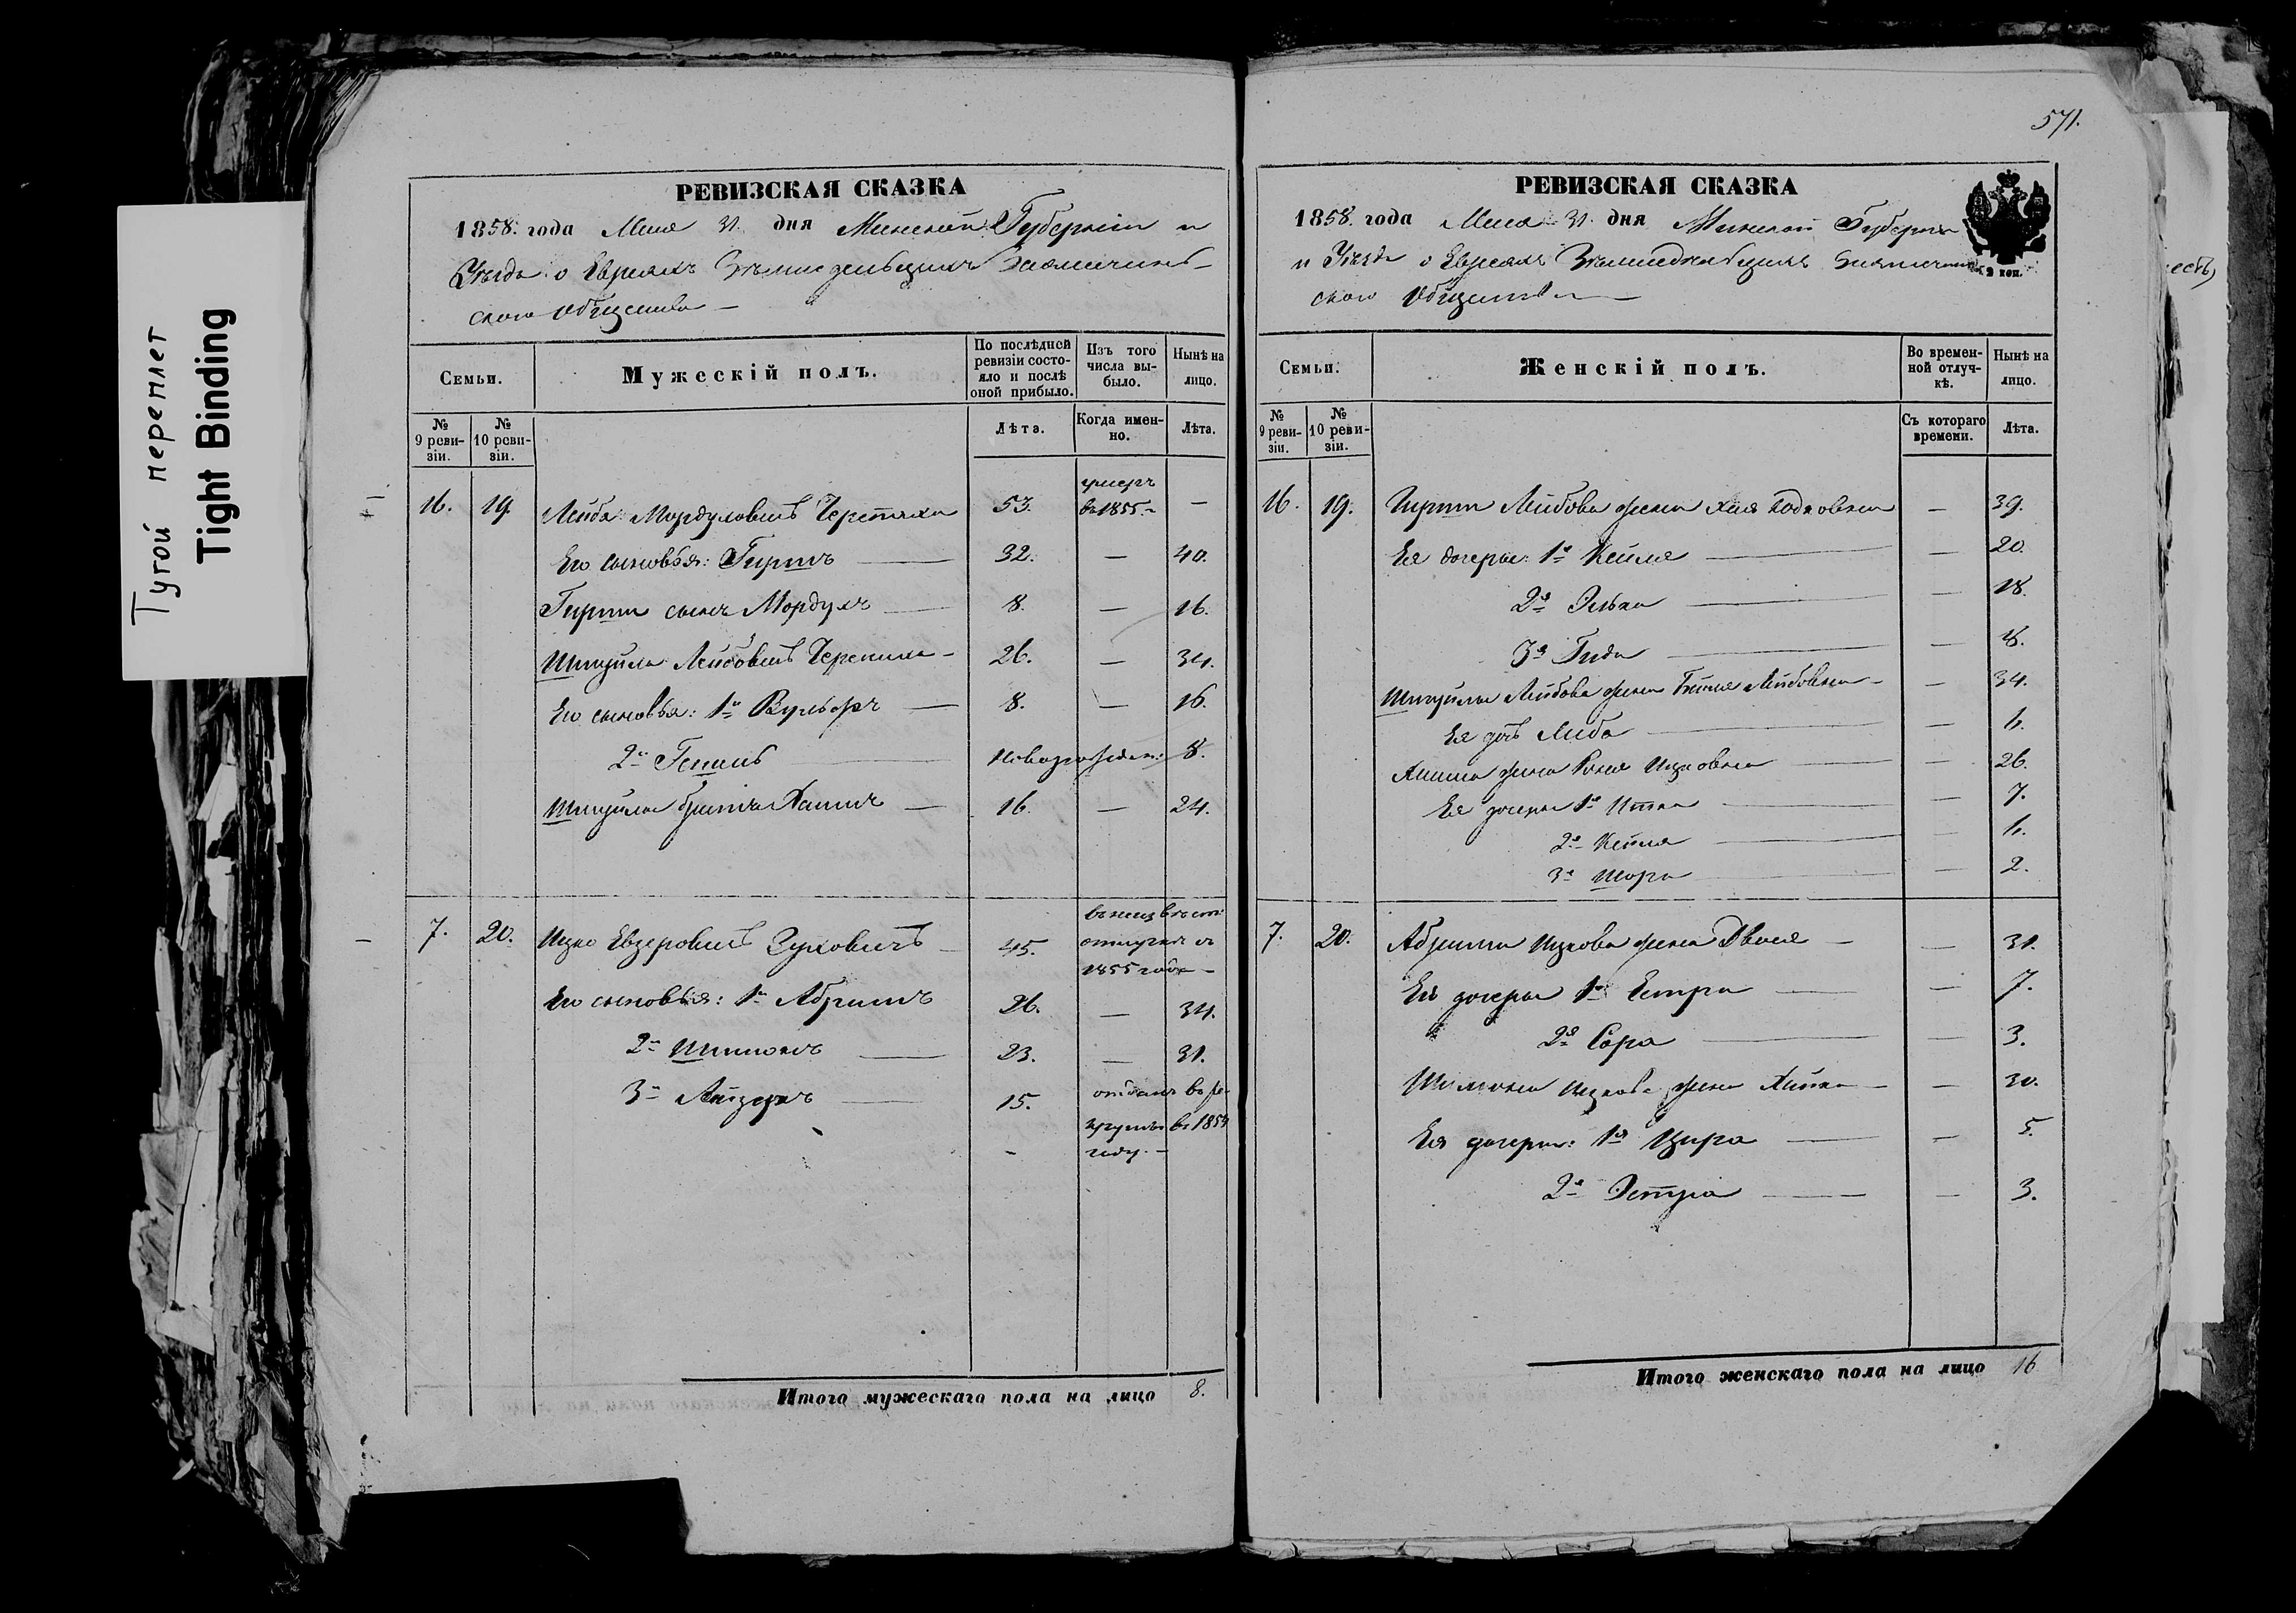 Тугой переплет
Tight Binding
571.
РЕВИЗСКАЯ СКАЗКА
1858. года Мая 31. дня Минской Губерніи и
Уѣзда о Евреяхъ Земледѣльцахъ
скаго общества —
Семьи.
Мужескій полъ.
По послѣдней ревизіи состояло и послѣ оной прибыло.
Изъ того числа выбыло.
Нынѣ на лицо.
№ 9 ревизіи.
№ 10 ревизіи.
Лѣта.
Когда именно.
Лѣта.
16. 19. Лейба Мордуховичъ 53. умеръ въ 1855. — —
Его сыновья: Гиршъ — 32. — 40.
Гирша сынъ Мордухъ — 8. — 16.
Шмуйла Лейбовичъ — 26. — 34.
Его сыновья: 1й Вульфъ — 8. — 16.
2й — новорожден: 8.
Шмуйлы братъ Хаимъ — 16. — 24.
7. 20. Ицко Евзеровичъ Зуховичъ — 45. въ неизвѣст: отлучкѣ съ 1855 года —
Его сыновья: 1й Абрамъ 26. — 34.
2й Шимонъ — 23. — 31.
3й Айзеръ — 15. отданъ въ рекруты въ 185 году. —
Итого мужескаго пола на лицо 8.
РЕВИЗСКАЯ СКАЗКА
1858. года Мая 31. дня Минской Губерніи
и Уѣзда о Евреяхъ Земледѣльцахъ
скаго Общества —
2 коп.
Семьи.
Женскій полъ.
Во временной отлучкѣ.
Нынѣ на лицо.
№ 9 ревизіи.
№ 10 ревизіи.
Съ котораго времени.
Лѣта.
16. 19. Гирша Лейбова жена Хая — 39.
Ея дочери: 1я Кейля — — 20.
2я Элька — — 18.
3я Гида — — 18.
Шмуйлы Лейбова жена Лейбовна — — 34.
Ея дочь Либа — — 6.
Хаима жена Ицковна — — 26.
Ея дочери 1я Итка — — 7.
2я Кейля — — 6.
3я Шора — — 2.
7. 20. Абрама Ицкова жена Двося — — 31.
Ея дочери 1я Естра — — 7.
2я Сора — — 3.
Шимона Ицкова жена Хайка — — 30.
Ея дочери: 1я Цира — — 5.
2я Эстра — — 3.
Итого женскаго пола на лицо 16